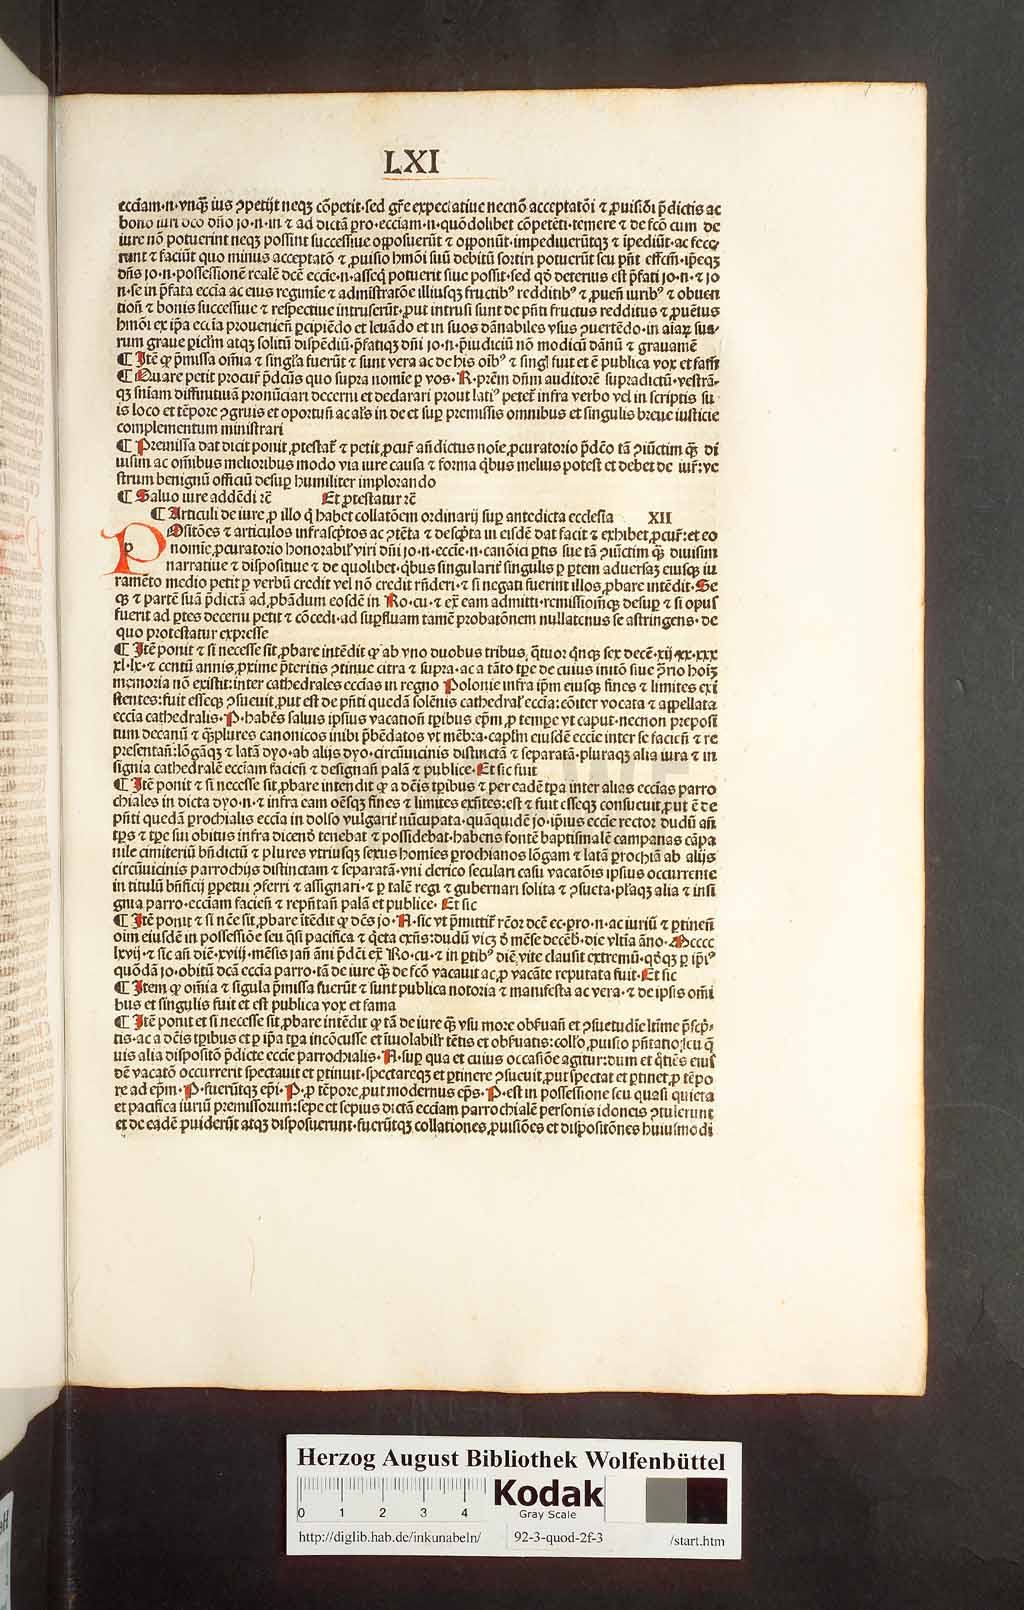 LXI
eccĩam·n·vnq̃ꝫ ius ꝯpetijt neqꝫ cõpetit·sed gr̃e expectatiue necnõ acceptatõi ⁊ ꝓuisiõi p̃dictis ac
bono iuri dño jo·n·in ⁊ ad dictã ꝑro·eccĩam·n·quõdolibet cõpetẽti·temere ⁊ de fc̃o cum de
iure nõ potuerint neqꝫ possint successiue oꝓposuerũt ⁊ oꝓponũt·impediuerũtqꝫ ⁊ ĩpediũt·ac fece
runt ⁊ faciũt quo minus acceptatõ ⁊ ꝓuisio hmõi suũ debitũ sortiri potuerũt seu pñt effcm̃·ip̃eqꝫ
dñs jo·n·possessionẽ realẽ dcẽ eccĩe·n·asseq̃ potuerit siue possit·sed qõ deterius est p̃fati jo·n·⁊ jo
n·se in p̃fata eccĩa ac eius regimĩe ⁊ admĩstratõe illiusqꝫ fructibꝰ redditibꝰ ⁊ ꝓuen̄ iuribꝰ ⁊ obuen
tion̄ ⁊ bonis successiue ⁊ respectiue intruserũt·ꝓut intrusi sunt de pñti fructus redditus ⁊ ꝓuẽtus
hmõi ex ip̃a eccĩa prouenien̄ ꝑcipiẽdo et leuãdo et in suos dãnabiles vsus ꝯuertẽdo·in aĩaꝝ sua
rum graue ꝑicl̃m atqꝫ solitũ dispẽdiũ·p̃fatiqꝫ dñi jo·n·p̃iudiciũ nõ modicũ dãnũ ⁊ grauamẽ
¶ Itẽ ꝙ p̃missa om̃ia ⁊ singl̃a fuerũt ⁊ sunt vera ac de his oĩbꝰ ⁊ singl̃ fuit et ẽ publica vox et fam̃
¶ Quare petit procur̃ p̃dcũs quo supra nomĩe ꝑ vos·R·prẽm dñm auditorẽ supradictũ·vestrã
qꝫ sñiam diffinitiuã pronũciari decerni et declarari prout latiꝰ petet̃ infra verbo vel in scriptis su
is loco et tẽpore ꝯgruis et oportun̄ ac al̃s in de et suꝑ premissis omnibus et singulis breue iusticie
complementum ministrari
¶ Premissa dat dicit ponit ꝓtestat̃ ⁊ petit ꝓcur̃ an̄dictus noĩe ꝓcuratorio p̃dcõ tã ꝯiũctim q̃ꝫ di
uisim ac om̃ibus melioribus modo via iure causa ⁊ forma q̃bus melius potest et debet de iur̃:ve
strum benignũ officiũ desuꝑ humiliter implorando
¶ Saluo iure addẽdi ꝛc̃ Et ꝓtestatur ꝛc̃
¶ Articuli de iure ꝓ illo q̃ habet collatõem ordinarij suꝑ antedicta ecclesia XII
POsitões ⁊ articulos infrascp̃tos ac ꝯtẽta ⁊ descp̃ta in eisdẽ dat facit ⁊ exhibet ꝓcur̃:et eo
nomĩe ꝓcuratorio honorabil̃ viri dñi jo·n·eccĩe·n·canõici ꝑtis sue tã ꝯiũctim q̃ꝫ diuisim
narratiue ⁊ dispositiue ⁊ de quolibet·q̃bus singularit̃ singulis ꝑ ꝑtem aduersaꝫ eiusqꝫ iu
ramẽto medio petit ꝑ verbũ credit vel nõ credit rñderi·⁊ si negati fuerint illos ꝓbare intẽdit·Se
qꝫ ⁊ partẽ suã p̃dictã ad ꝓbãdum eosdẽ in Ro·cu·⁊ ex̃ eam admitti·remissiom̃qꝫ desuꝑ ⁊ si opus
fuerit ad ꝑtes decerni petit ⁊ cõcedi·ad suꝑfluam tamẽ probatõnem nullatenus se astringens·de
quo protestatur expresse
¶ Itẽ ponit ⁊ si necesse sit ꝓbare intẽdit ꝙ ab vno duobus tribus, q̃tuor q̃nqꝫ sex decẽ·xij·xx·xxx
xl·lx·⁊ centũ annis ꝓxime p̃teritis ꝯtinue citra ⁊ supra·ac a tãto tꝑe de cuius initõ siue ꝯ̃rio hoĩꝫ
memoria nõ existit:inter cathedrales eccĩas in regno Polonie infra ip̃m eiusqꝫ fines ⁊ limites exi
stentes:fuit esseqꝫ ꝯsueuit ꝓut est de pñti quedã solẽnis cathedral̃ eccĩa:cõiter vocata ⁊ appellata
eccĩa cathedralis·P·habẽs saluis ipsius vacation̄ tꝑibus ep̃m ꝓ tempe vt caput·necnon preposi
tum decanũ ⁊ q̃ꝫplures canonicos inibi p̃bẽdatos vt mẽbra·capl̃m eiusdẽ eccĩe inter se facien̄ ⁊ re
presentan̄:lõgãqꝫ ⁊ latã dyo·ab alijs dyo·circũuicinis distinctã ⁊ separatã·pluraqꝫ alia iura ⁊ in
signia cathedralẽ eccĩam facien̄ ⁊ designan̄ palã ⁊ publice·Et sic fuit
¶ Itẽ ponit ⁊ si necesse sit ꝓbare intendit ꝙ a dcĩs tꝑibus ⁊ per eadẽ tꝑa inter alias eccĩas parro
chiales in dicta dyo·n·⁊ infra eam oẽsqꝫ fines ⁊ limites exñtes:est ⁊ fuit esseqꝫ consueuit ꝓut ẽ de
pñti quedã ꝑrochialis eccĩa in dolso vulgarit̃ nũcupata·quãquidẽ jo·ip̃ius eccĩe rector dudũ an̄
tꝑs ⁊ tꝑe sui obitus infra dicend̃ tenebat ⁊ possidebat·habens fontẽ baptismalẽ campanas cãpa
nile cimiteriũ bñdictũ ⁊ plures vtriusqꝫ sexus homĩes ꝑrochianos lõgam ⁊ latã ꝑrochiã ab alijs
circũuicinis parrochijs distinctam ⁊ separatã·vni clerico seculari casu vacatõis ipsius occurrente
in titulũ bñficij ꝑpetui ꝯferri ⁊ assignari·⁊ ꝑ talẽ regi ⁊ gubernari solita ⁊ ꝯsueta·pl̃aqꝫ alia ⁊ insi
gnia parro·eccĩam facien̄ ⁊ repñtan̄ palã et publice·Et sic
¶ Itẽ ponit ⁊ si ncẽ sit ꝓbare ĩtẽdit ꝙ dcẽs jo·N·sic vt p̃mittit̃ rcõr dcẽ ec·pro·n·ac iuriũ ⁊ ꝑtinen̄
oĩm eiusdẽ in possessiõe seu q̃si pacifica ⁊ q̃eta exñs:dudũ vicꝫ ð mẽse decẽb̃·die vltĩa ãno·Mcccc
lxvij·⁊ sic an̄ diẽ·xviij·mẽsis jan̄ ãni p̃dcĩ ex̃ Ro·cu·⁊ in ꝑtibꝰ diẽ vite clausit extremũ·qõqꝫ ꝑ ip̃iꝰ
quõdã jo·obitũ dcã eccĩa parro·tã de iure q̃ꝫ de fcõ vacauit ac ꝓ vacãte reputata fuit·Et sic
¶ Item ꝙ om̃ia ⁊ sigula p̃missa fuerũt ⁊ sunt publica notoria ⁊ manifesta ac vera·⁊ de ipsis om̃i
bus et singulis fuit et est publica vox et fama
¶ Itẽ ponit et si necesse sit ꝓbare intẽdit ꝙ tã de iure q̃ꝫ vsu more obsuan̄ et ꝯsuetudĩe ltĩme p̃scp̃
tis·ac a dcĩs tꝑibus et ꝑ ip̃a tꝑa incõcusse et ĩuiolabilr̃ tẽtis et obsuatis:coll̃o ꝓuisio pñtatio seu q̃
uis alia dispositõ p̃dicte eccĩe parrochialis·N·suꝑ qua et cuius occasiõe agitur:dum et q̃tiẽs eius
dẽ vacatõ occurrerit spectauit et ꝑtinuit·spectareqꝫ et ꝑtinere ꝯsueuit ꝓut spectat et ꝑtinet ꝓ tẽpo
re ad ep̃m·P·fuerũtqꝫ ep̃i·P·ꝓ tẽpore ꝓut modernus ep̃s·P·est in possessione seu quasi quieta
et pacifica iuriũ premissorum:sepe et sepius dictã eccĩam parrochialẽ personis idoneis ꝯtulerunt
et de eadẽ ꝓuiderũt atqꝫ disposuerunt·fuerũtqꝫ collationes ꝓuisiões et dispositõnes huiusmodi
Herzog August Bibliothek Wolfenbüttel
0 1 2 3 4
Kodak
Gray Scale
http://diglib.hab.de/inkunabeln/ 92-3-quod-2f-3 /start.htm